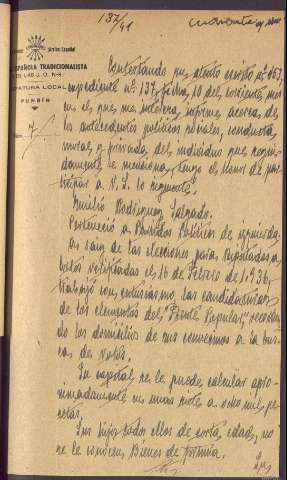 137/41
cuarenta y
Saludo a Franco Español
ESPAÑOLA TRADICIONALISTA
DE LAS J.O.N-S.
JEFATURA LOCAL
PUNXIN
Núm. 7/
Contestando su atento escrito nº 653,
expediente nº 137 fecha, 10 del corriente mes
en el que me interesa, informe acerca de
los antecedentes políticos sociales, conducta
moral y privada, del individuo que seguidamente
se menciona, tengo el honor de participar
a V.S. lo siguiente:
Emilio Rodriguez Salgado.
Perteneció a Partidos Políticos de izquierda.
A raiz de las elecciones para Diputados a
Cortes verificadas el 16 de Febrero de 1.936,
trabajó con entusiasmo, las candidaturas
de los elementos del "Frente Popular," recorriendo
los domicilios de sus convecinos a la busca
de votos.
Su capital, se le puede calcular aproximadamente
en unas siete a ocho mil pesetas.
Sus hijos todos ellos de corta edad, no
se le conocen Bienes de fortuna.